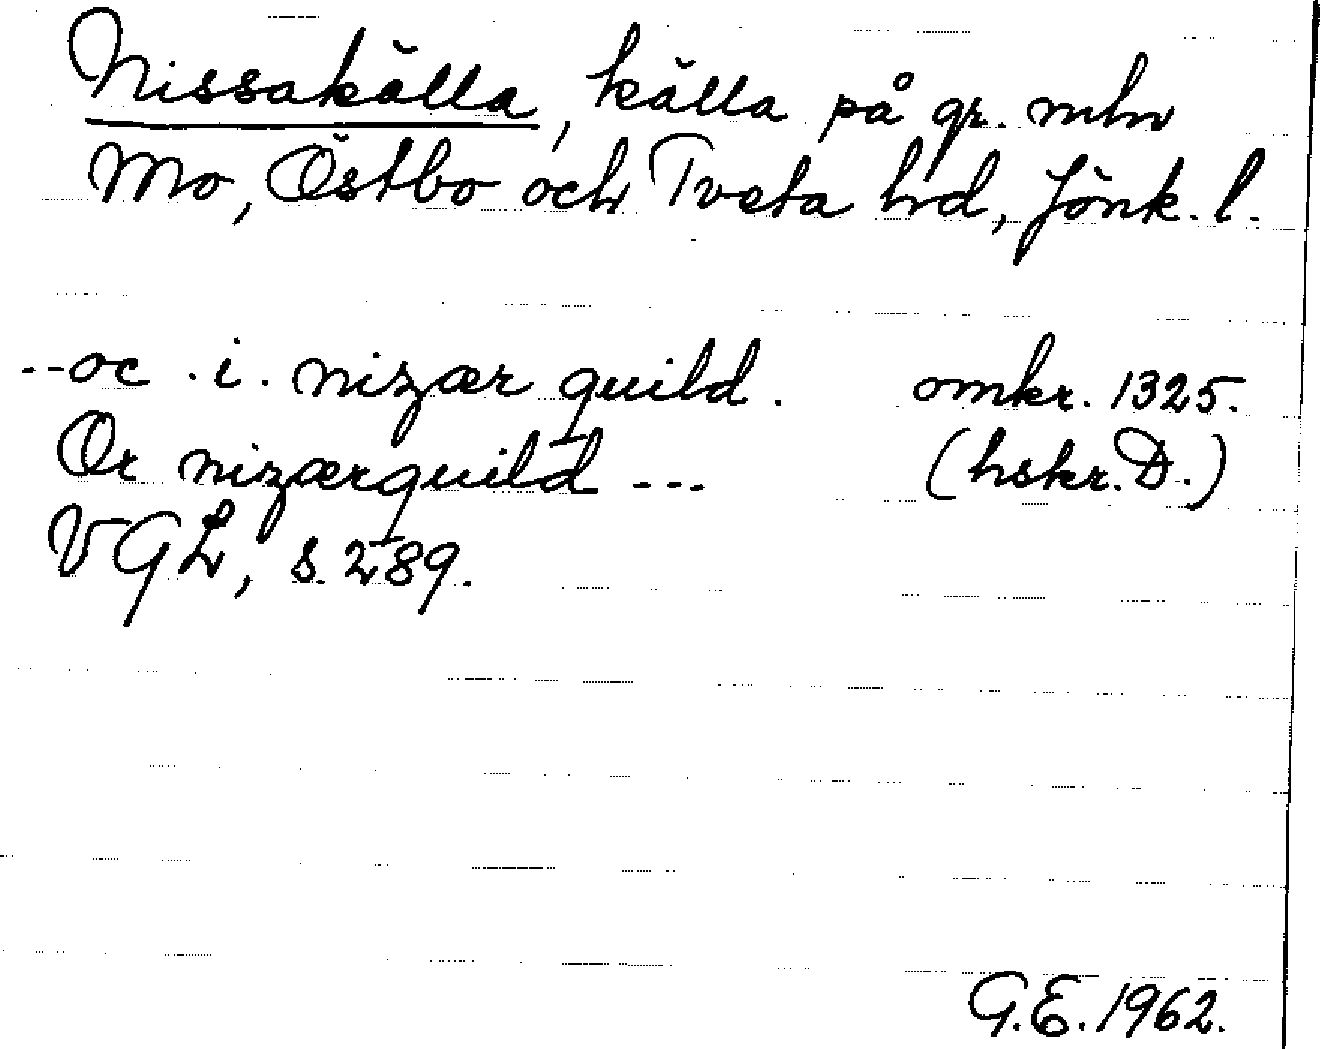 Nissakälla, källa på gr. mln
Mo, Östbo och Tveta hrd, Jönk. l.
--oc .i. nizær quild. omkr. 1325.
Or nizærquild --- (hskr. D.)
VGL, s. 289.
G.E. 1962.